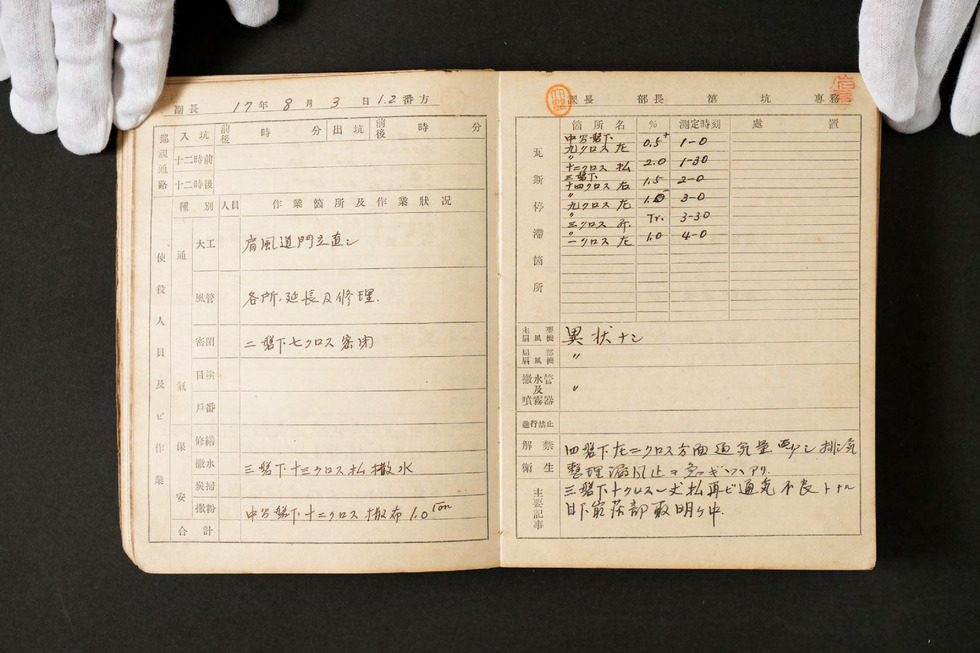 副長 17年8月3日1.2番方
巡視通路 入坑 前後 時 分 出坑 前後 時 分
十二時前
十二時後
種別 人員 作業箇所及作業状況
使役人員及ビ作業
通氣
大工 扇風道門立直シ
風管 各所、延長及修理.
密閉 二盤下七クロス密閉
目塗
戸番
保安
修繕
撒水 三盤下十三クロス払撒水
炭掃
撒粉 中労盤下十二クロス撒布1.0 Ton
合計
課長 部長 第 坑 専務
瓦斯停滞箇所
箇所名 % 測定時刻 處置
中労盤下
九クロス左 0.5+ 1-0
〃
十二クロス払 2.0 1-30
三盤下
十四クロス右 1.5 2-0
〃
九クロス左 3-0
〃
三クロス Tr. 3-30
〃
一クロス左 1.0 4-0
主要扇風機 異状ナシ
局部扇風機 〃
撒水管及噴霧器 〃
通行禁止
解禁
衛生
四盤下左二クロス方面通気量 排気
整理漏風止ヲ急ギツツアリ.
主要記事
三盤下十クロス 払再ビ通気不良トナル
目下崩落部取明ケ中.